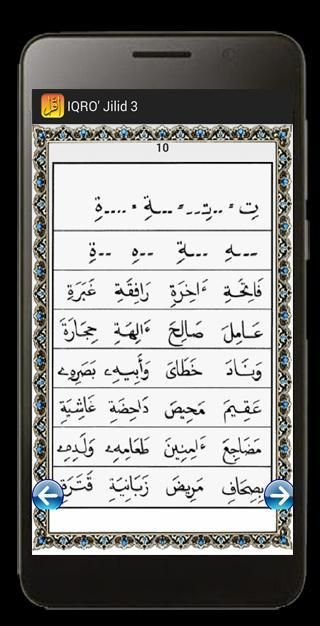 IQRO' Jilid 3
10
تِ = ..تِـ.. = ...ـةِ = ....ةِ
...ـهِ ...ـةِ ..هِ ..ةِ
فَاتِحَةِ ءَاخِرَةِ رَافِقَةِ غَبَرَةِ
عَامِلَ صَالِحَ ءَالِهَةِ حِجَارَةَ
وَنَادَ خَطَايَ وَأَبِيهِ بَصَرِهِ
عَقِيمَ مَحِيصَ دَاحِضَةِ غَاشِيَةِ
مَضَاجِعَ ءَامِنِينَ طَعَامِهِ وَلَدِهِ
بِصِحَافِ مَرِيضَ زَبَانِيَةِ قَتَرَةِ